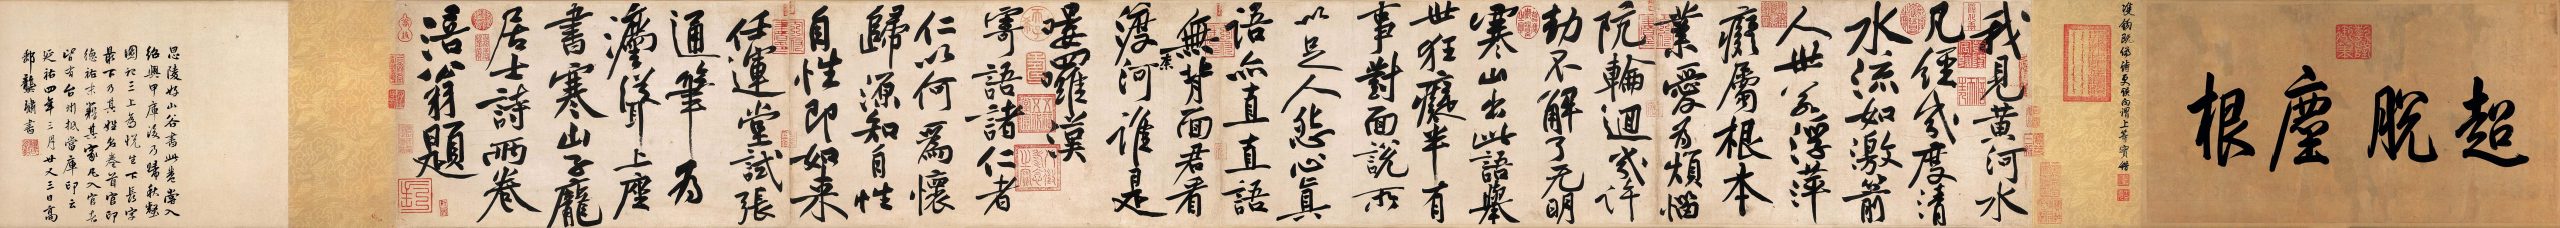 超脫塵根
我見黃河水
凡經幾度清
水流如激箭
人世若浮萍
癡屬根本
業愛為煩惱
阬輪迴幾許
劫不解了无明
寒山出此語舉
世狂癡半有
事對面說所
以足人怨心真
語亦直直語
無背面君看
渡奈河誰是
嘍囉漢
寄語諸仁者
仁以何為懷
歸源知自性
自性即如来
任運堂試張
通筆為
灋聳上座
書寒山子龐
居士詩兩卷
涪翁題
思陵好山谷書此卷嘗入
紹興甲庫後乃歸秋壑
圖記三上為悅生下長字
最下乃其姓名卷首官印
德祐末籍其家凡入官者
皆有台州抵當庫印云
延祐四年三月廿又三日高
郵龔璛書